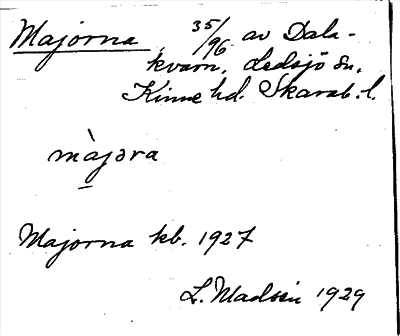 Majorna 35/96 av Dala-
kvarn, Ledsjö sn,
Kinne hd. Skarab. l.
màjora
Majorna kb. 1927
L. Madsén 1929